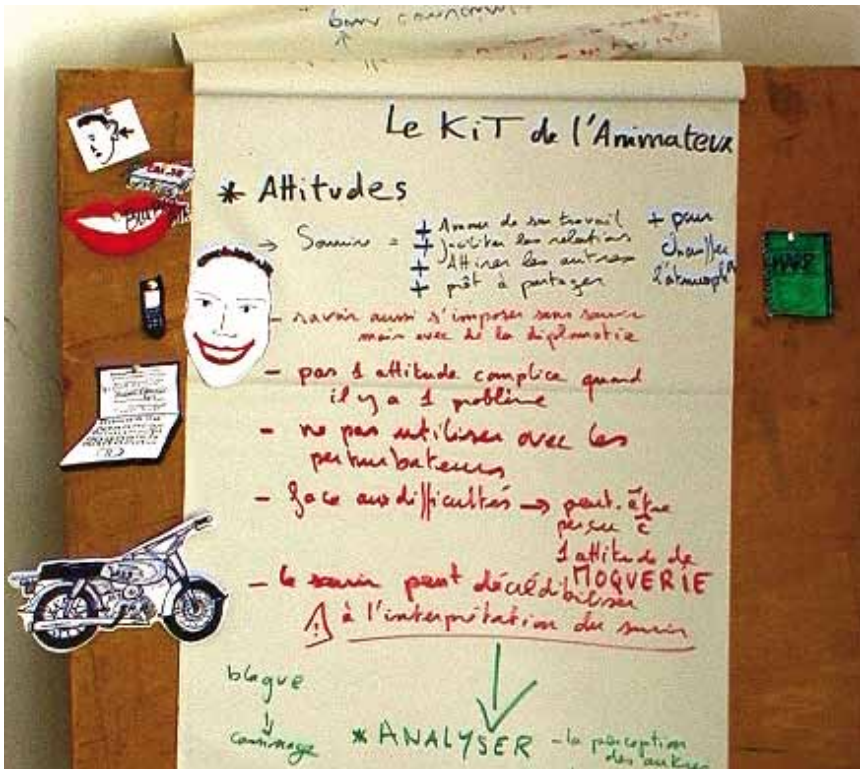 bon
Le KiT de l'Animateur
* Attitudes
→ Sourire = + Aimer de son travail + pour
+ faciliter les relations chauffer
+ Attirer les autres l'atmosph
+ prêt à partager
MARP
- savoir aussi s'imposer sans sourire
mais avec de la diplomatie
- pas 1 attitude complice quand
il y a 1 problème
- ne pas utiliser avec les
perturbateurs
- face aux difficultés → peut être
perçu c̄
1 attitude de
MOQUERIE
- le sourire peut décrédibiliser
⚠ à l'interprétation du sourire
blague
↓
* ANALYSER - la perception
des autres